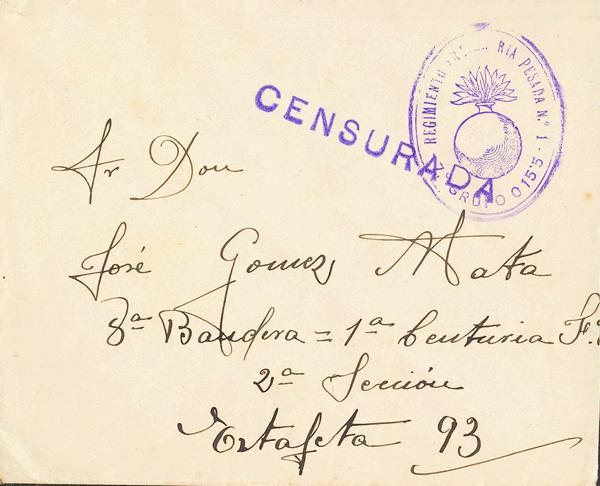 CENSURADA
REGIMIENTO RIA PESADA N.º 1
GRUPO O 15'5
Sr Don
José Gomez Mata
8ª Bandera = 1ª Centuria F.
2ª Sección
Estafeta 93